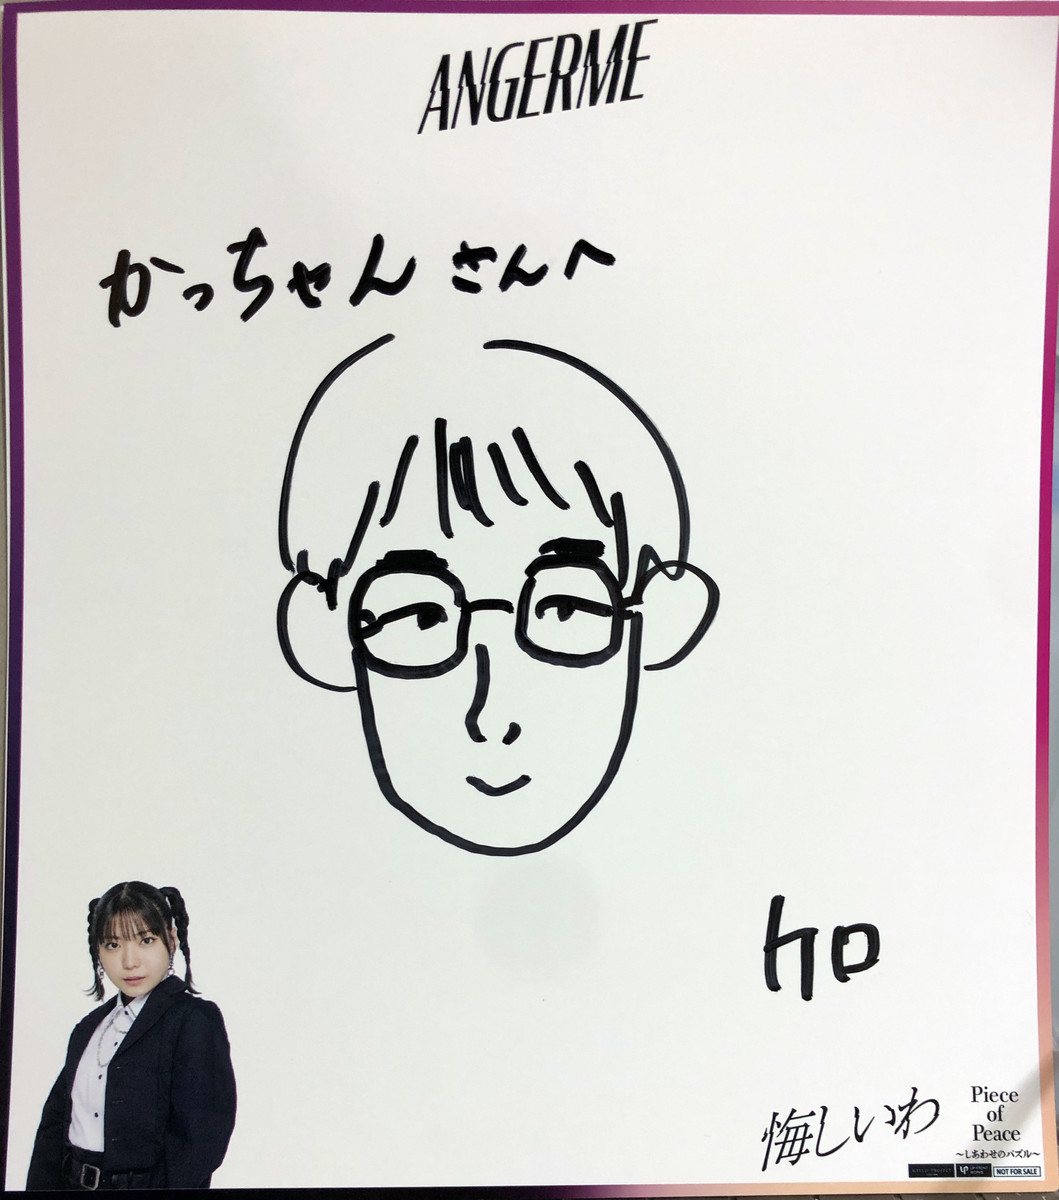 ANGERME
かっちゃん さんへ
ケロ
悔しいわ
Piece
of
Peace
～しあわせのパズル～
NOT FOR SALE